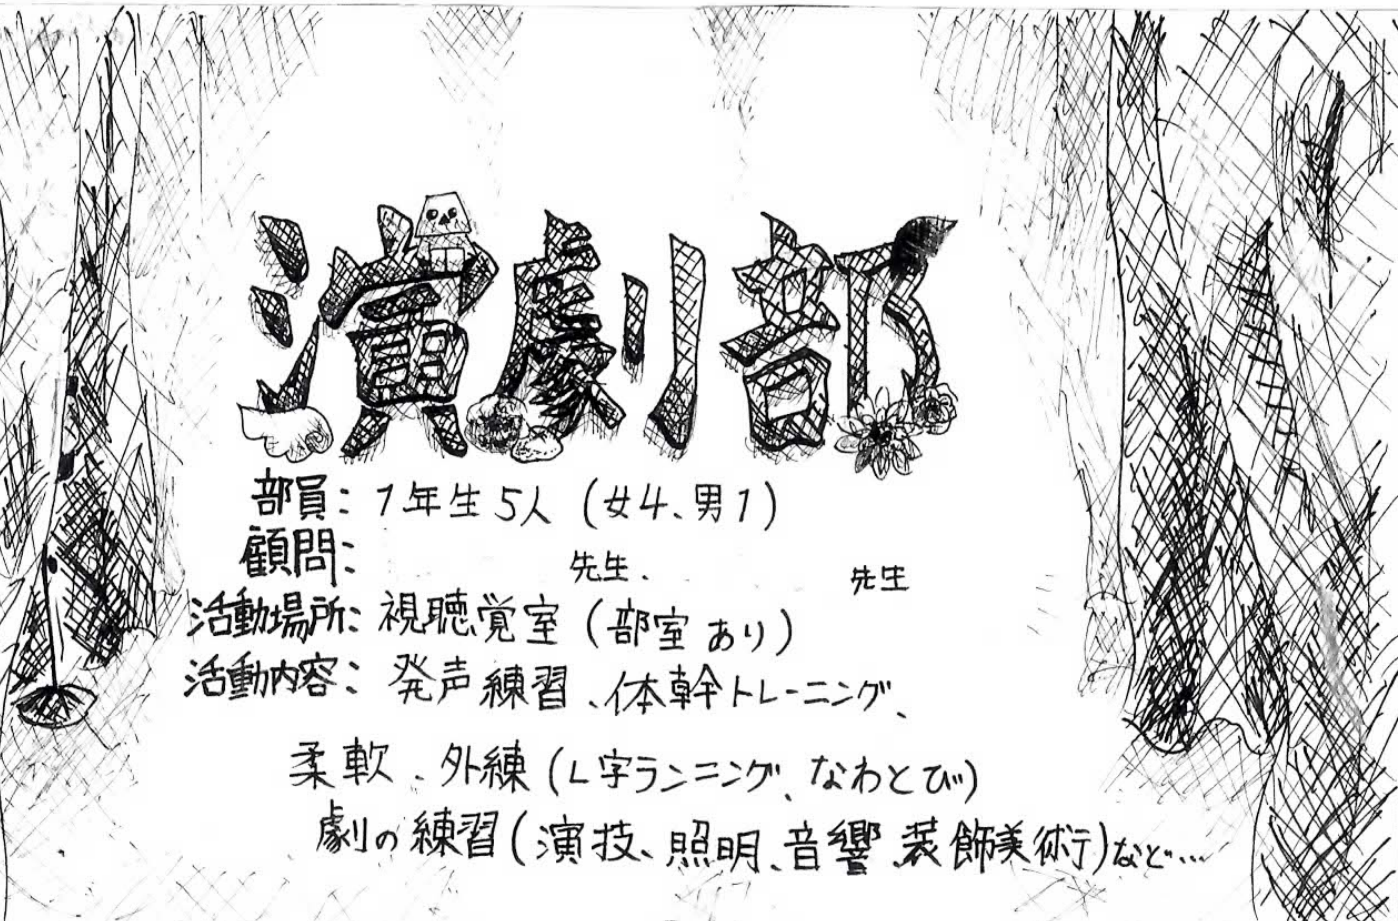 演劇部
部員: 1年生5人 (女4、男1)
顧問: 先生、 先生
活動場所: 視聴覚室 (部室あり)
活動内容: 発声練習、体幹トレーニング、
柔軟、外練 (L字ランニング、なわとび)
劇の練習 (演技、照明、音響、装飾美術) など…